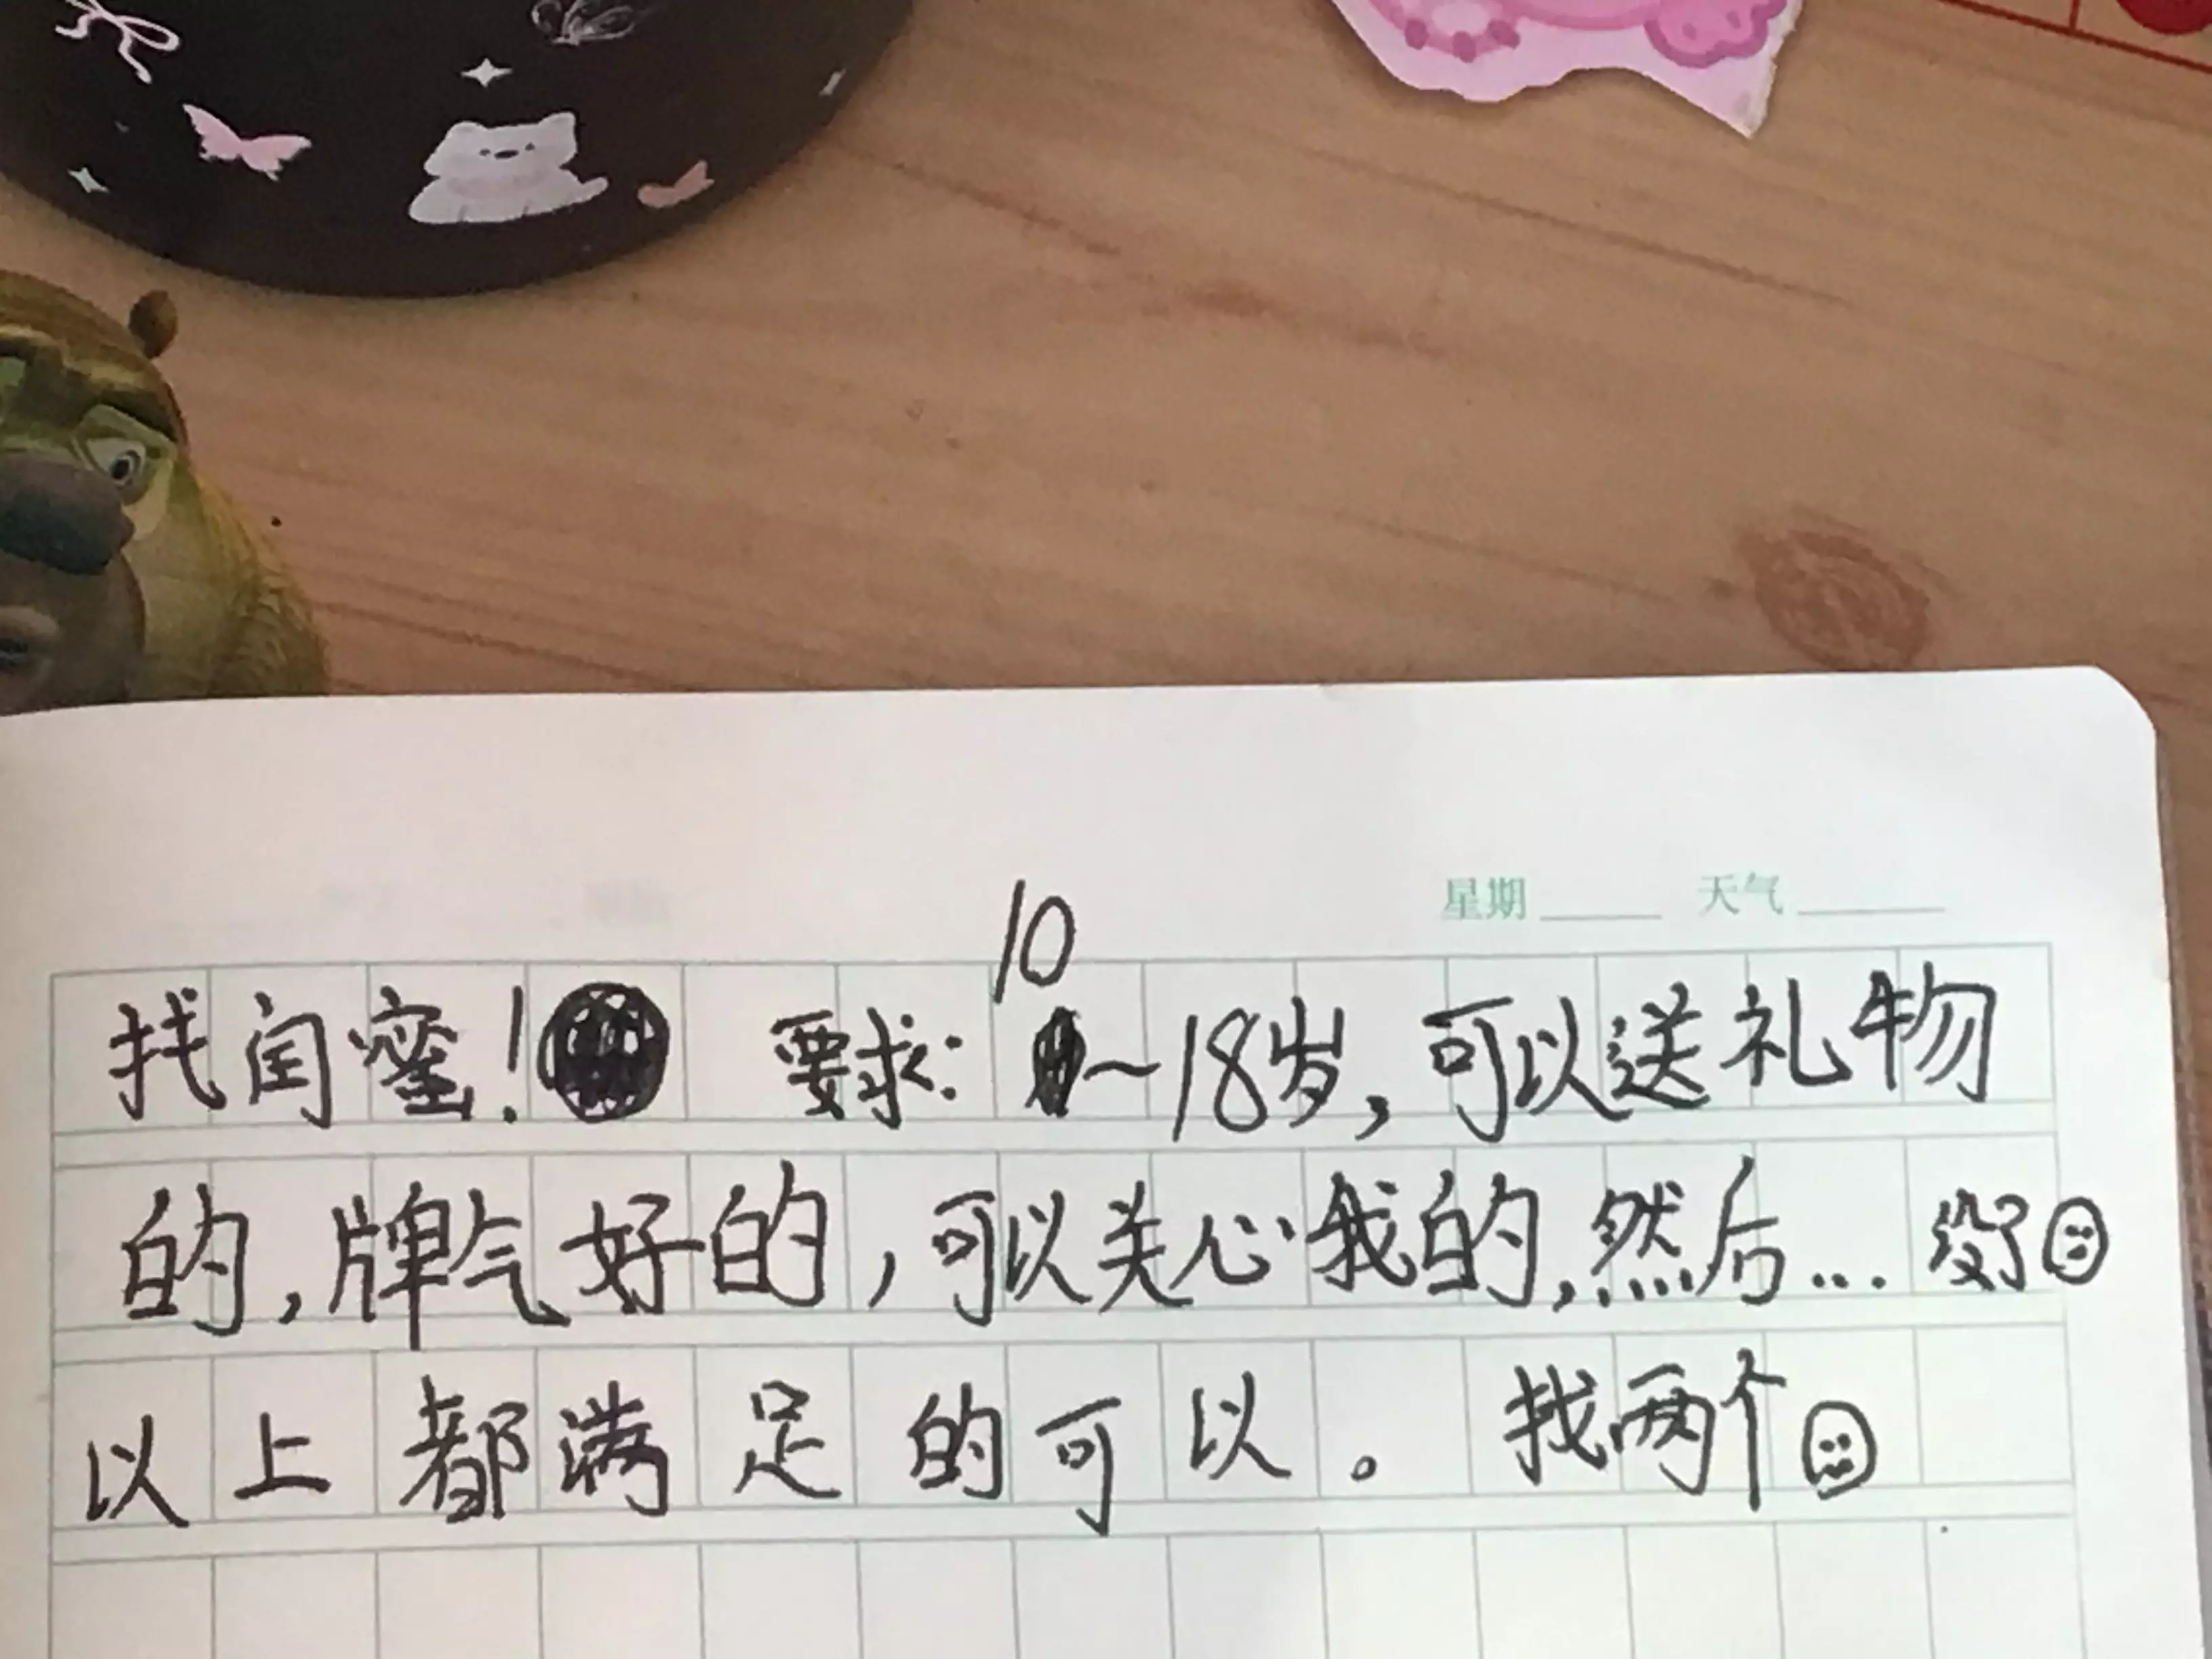 星期 天气
找闺蜜! 要求: 10~18岁,可以送礼物
的,牌气好的,可以关心我的,然后... 没了
以上都满足的可以。找两个